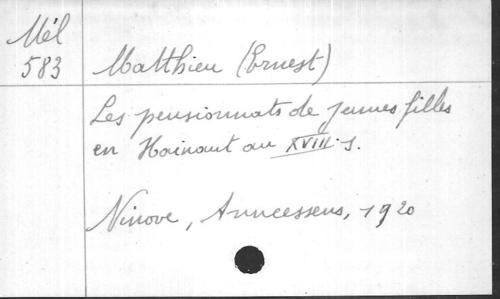 Mél
583
Matthieu (Ernest)
Les pensionnats de jeunes filles
en Hainaut au XVIII s.
Ninove, Anneessens, 1920